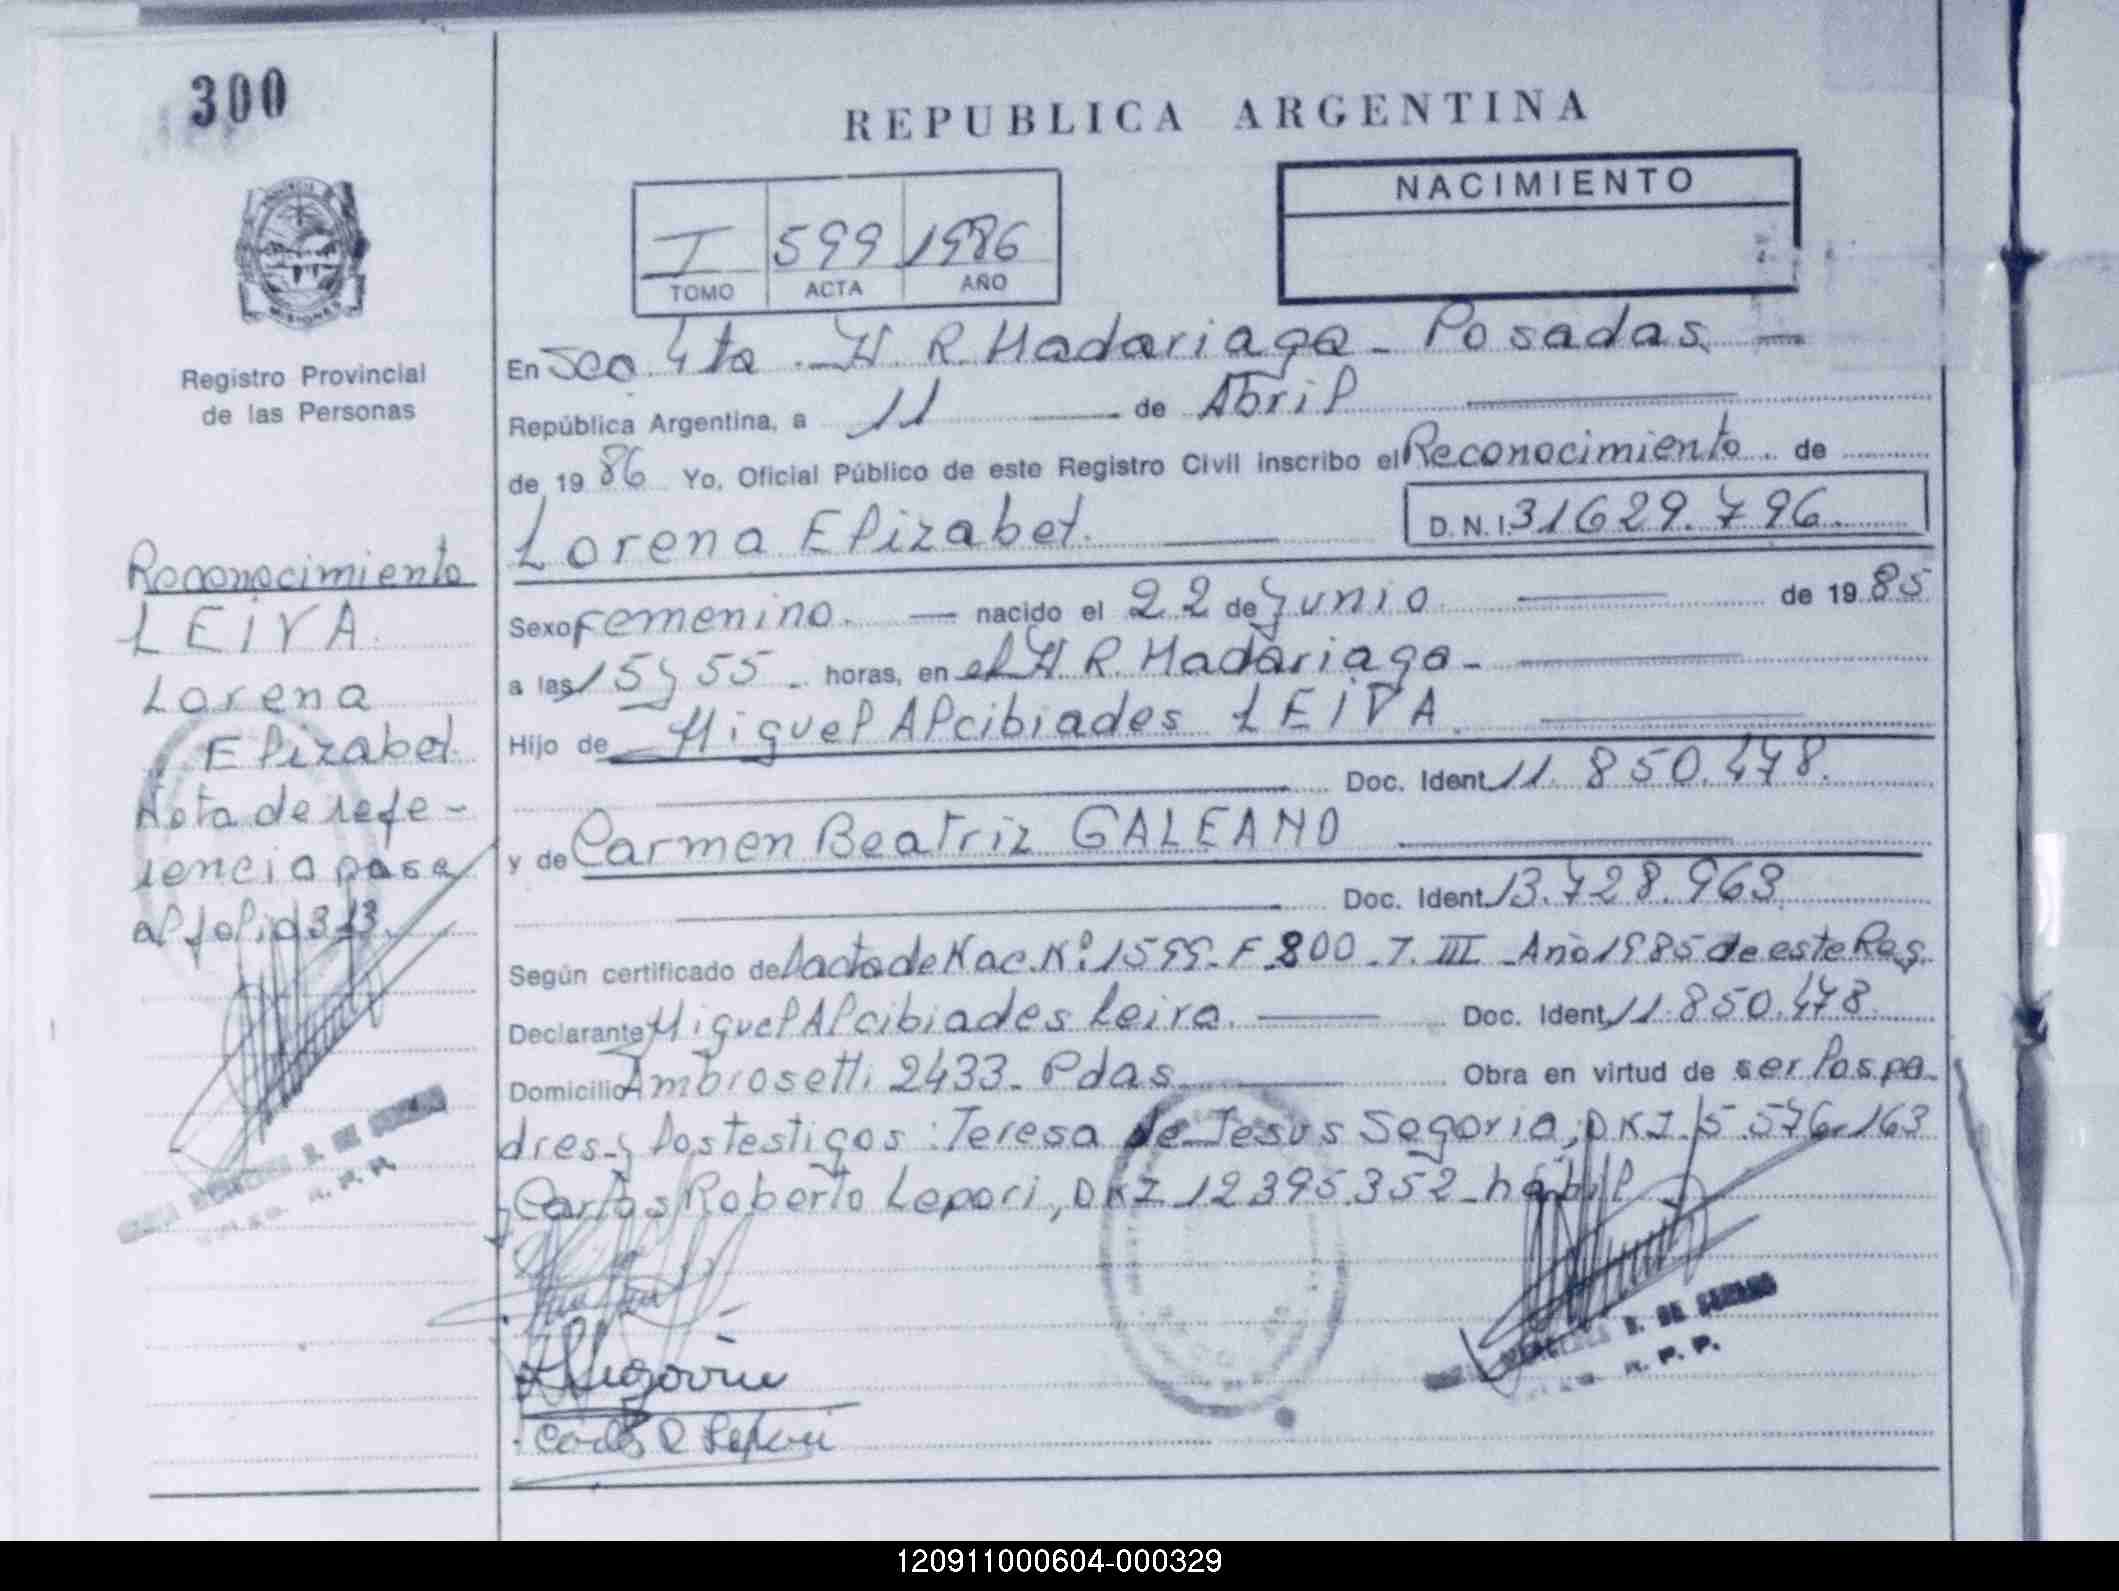 300
REPUBLICA ARGENTINA
I 599 1986
TOMO ACTA AÑO
NACIMIENTO
MISIONES
Registro Provincial
de las Personas
En Sec. 4ta. H. R. Madariaga - Posadas.
República Argentina, a 11 de Abril
de 1986 Yo, Oficial Público de este Registro Civil inscribo el Reconocimiento de
Lorena Elizabet. D.N.I. 31629.796.
Sexo Femenino. nacido el 22 de Junio de 1985
a las 15 y 55 horas, en el H. R. Madariaga -
Hijo de Miguel Alcibiades LEIVA.
Doc. Ident 11.850.478.
y de Carmen Beatriz GALEANO
Doc. Ident 13.728.963.
Según certificado de Nac. Nº 1599 - F 800 - T. III - Año 1985 de este Reg.
Declarante Miguel Alcibiades Leiva. Doc. Ident 11.850.478.
Domicilio Ambrosetti 2433 - Pdas. Obra en virtud de ser los pa-
dres y los testigos: Teresa de Jesus Segovia, DNI. 5.576.163
y Carlos Roberto Lepori, DNI 12395.352 - hábil
Segovia
Carlos R Lepori
Reconocimiento
LEIVA
Lorena
Elizabet.
Nota de refe-
rencia pasa
al folio 313.
R. P. P.
R. P. P.
120911000604-000329